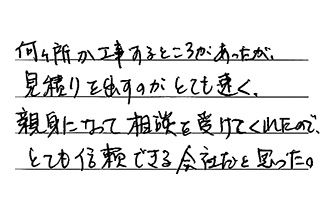 何ヶ所か工事するところがあったが、
見積りを出すのがとても速く、
親身になって相談を受けてくれたので、
とても信頼できる会社だと思った。